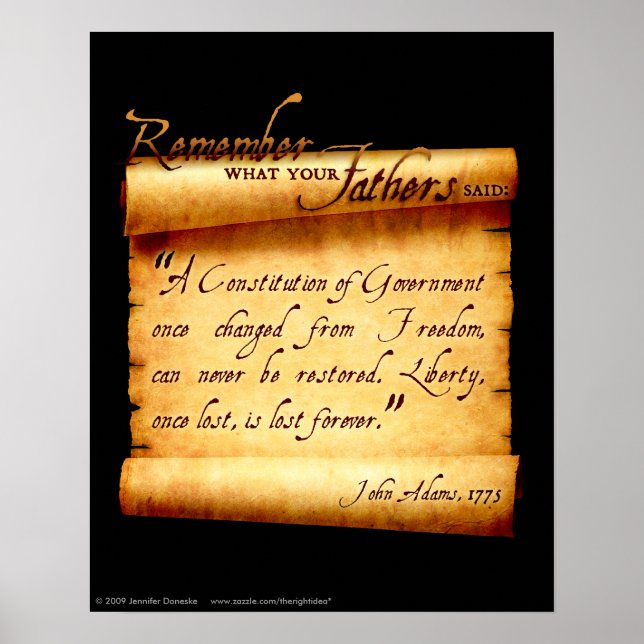 Remember
WHAT YOUR Fathers SAID:
"A Constitution of Government
once changed from Freedom,
can never be restored. Liberty,
once lost, is lost forever."
John Adams, 1775
© 2009 Jennifer Doneske www.zazzle.com/therightidea*